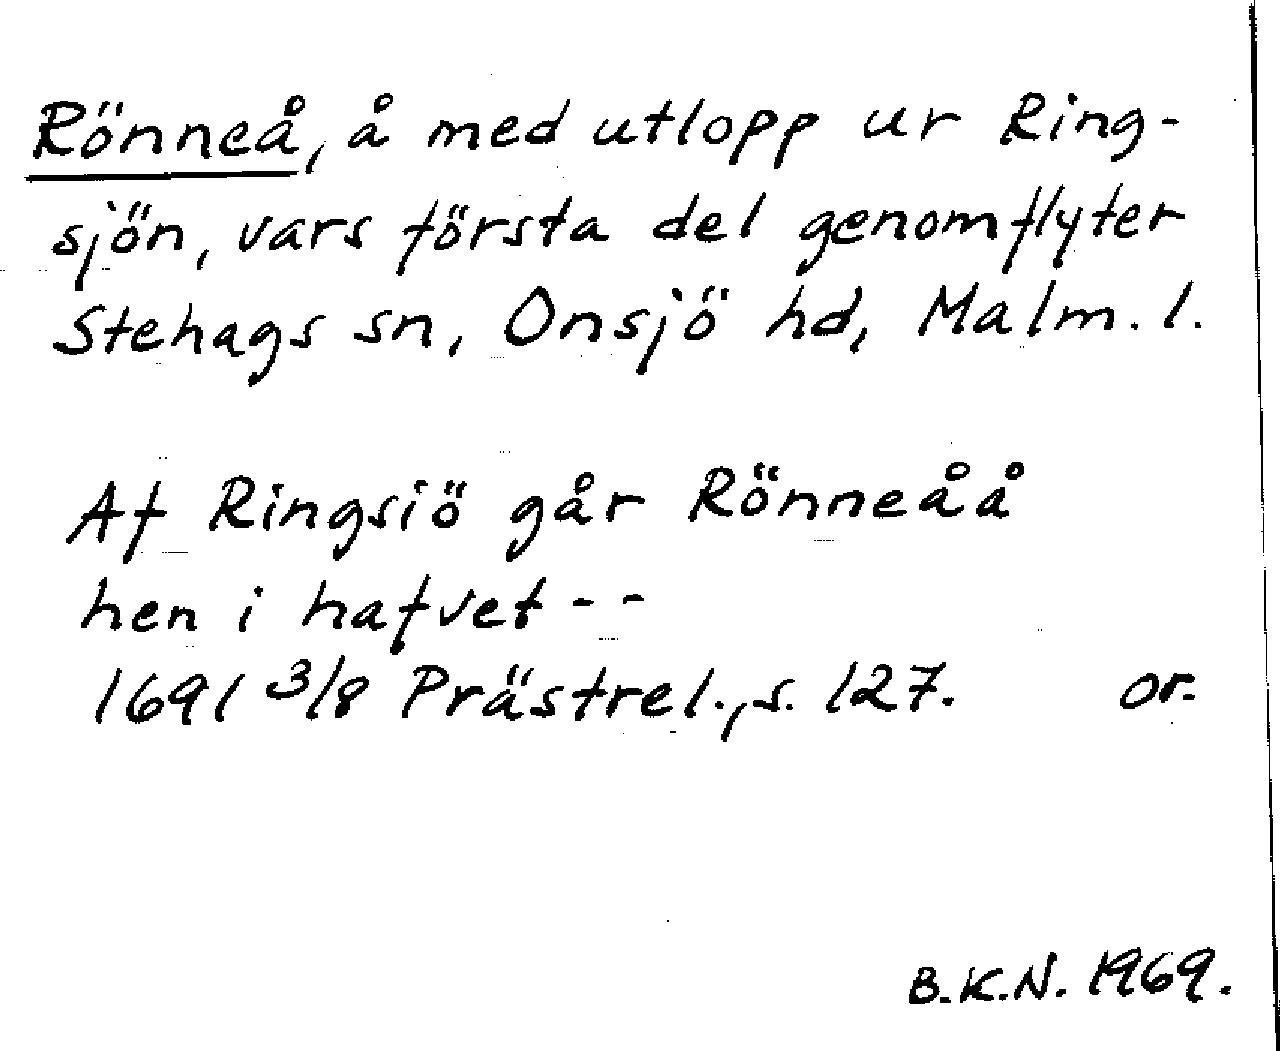 Rönneå, å med utlopp ur Ring-
sjön, vars första del genomflyter
Stehags sn, Onsjö hd, Malm. l.
Af Ringsiö går Rönneåå
hen i hafvet - -
1691 3/8 Prästrel., s. 127. or.
B.K.N. 1969.